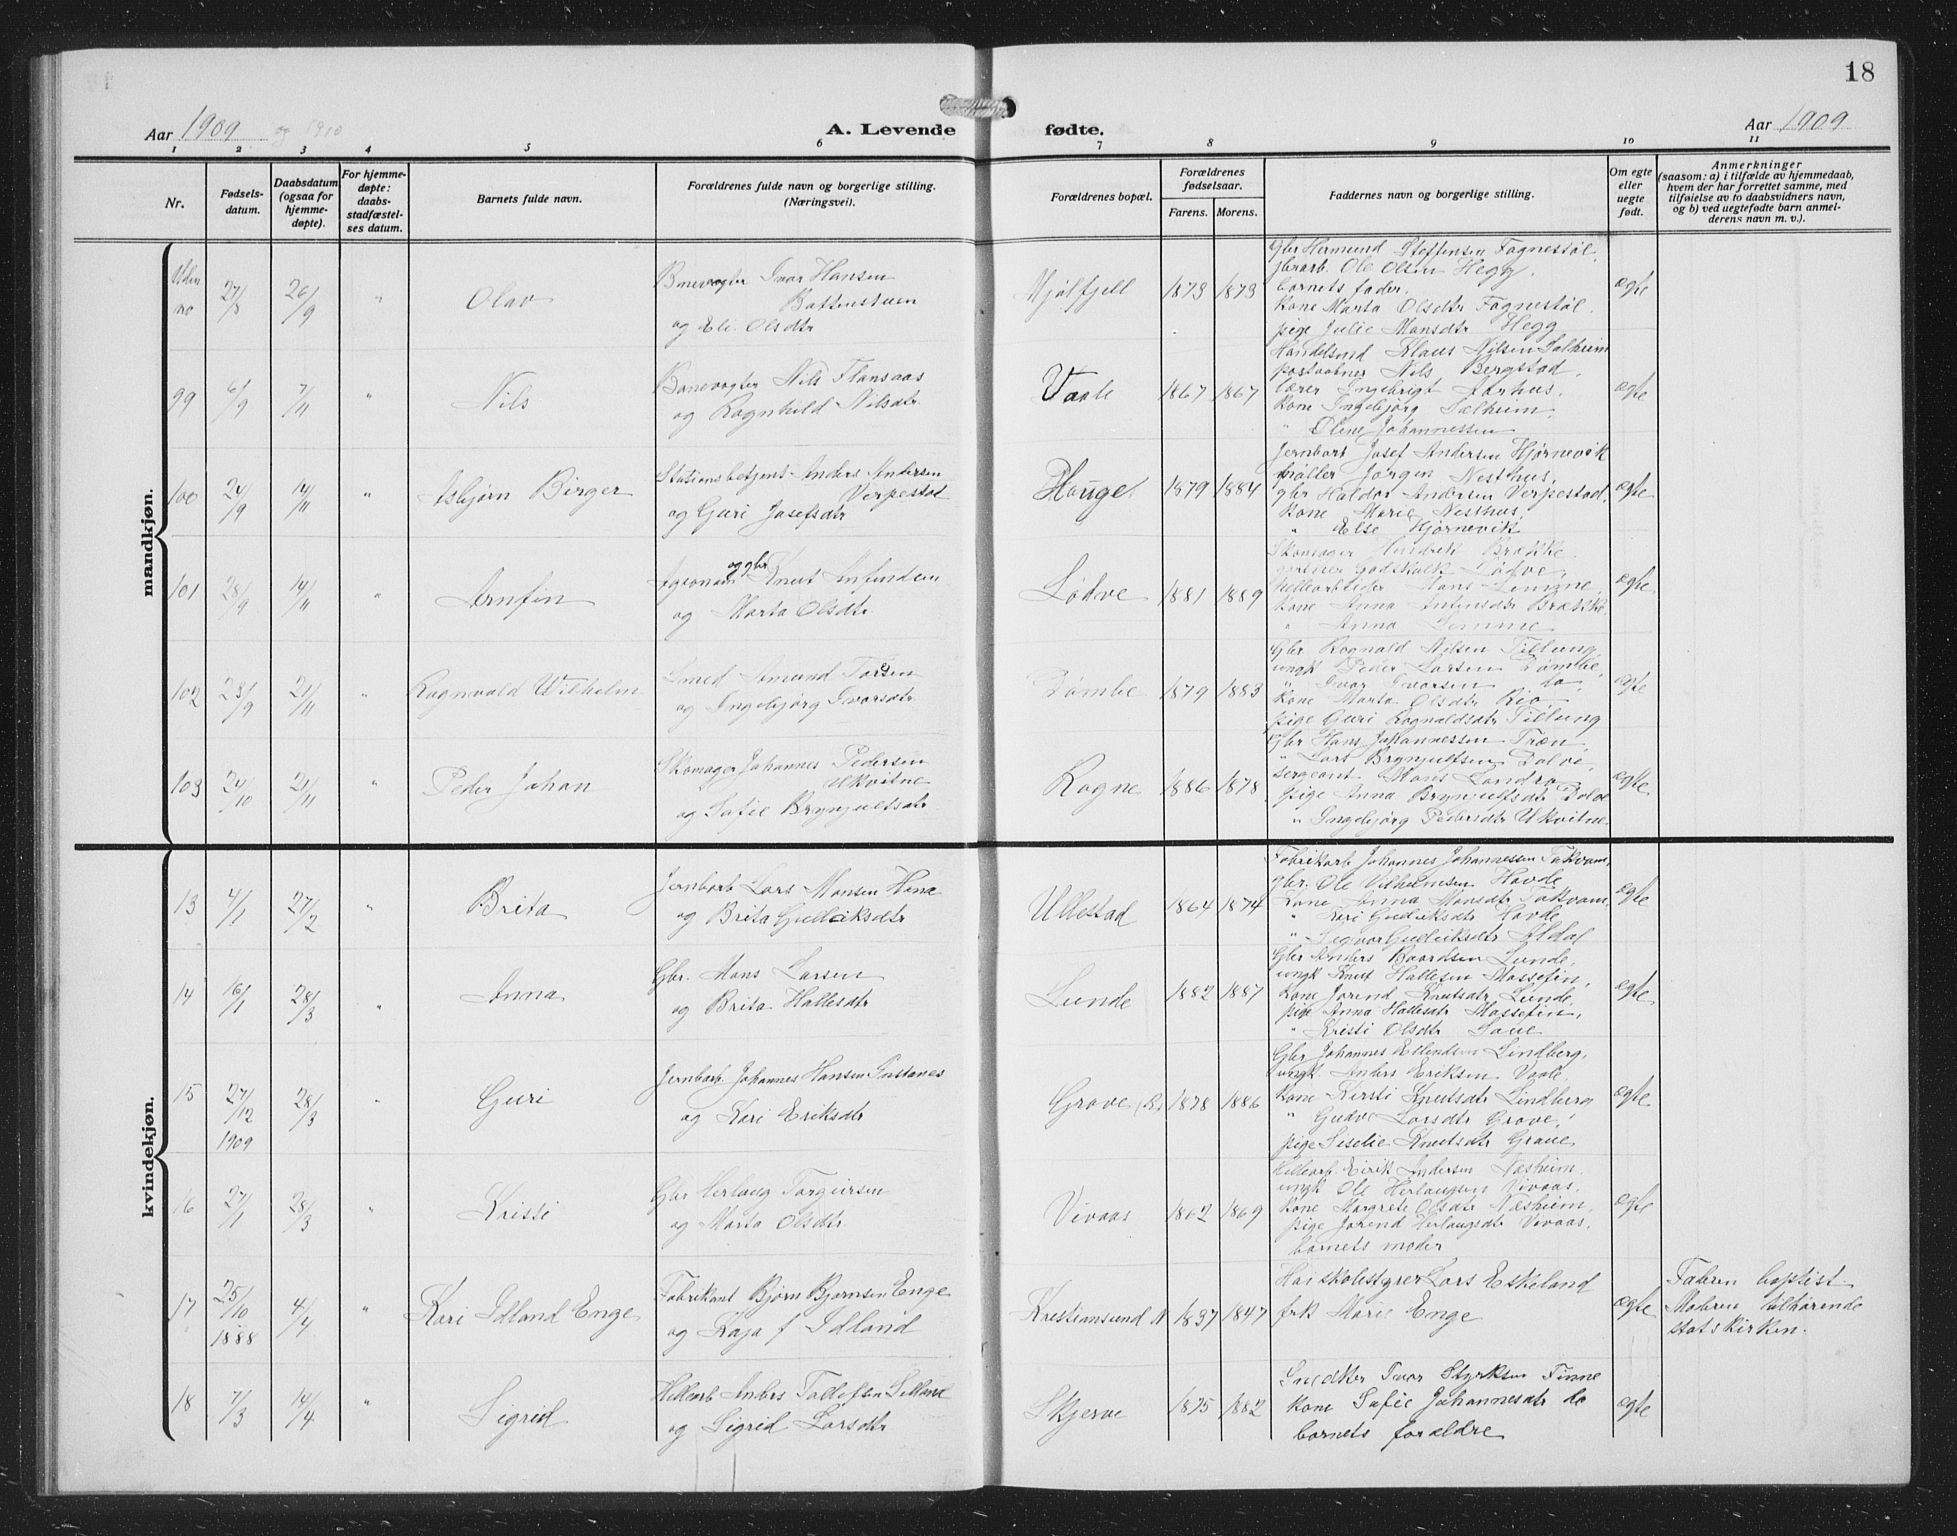 18
Aar 1909 og 1910 A. Levende fødte. Aar 1909
1 2 3 4 5 6 7 8 9 10 11
Nr.
Fødsels-
datum.
Daabsdatum
(ogsaa for
hjemme-
døpte).
For hjemme-
døpte:
daabs-
stadfæstel-
ses datum.
Barnets fulde navn.
Forældrenes fulde navn og borgerlige stilling.
(Næringsvei).
Forældrenes bopæl.
Forældrenes
fødselsaar.
Farens. Morens.
Faddernes navn og borgerlige stilling.
Om egte
eller
uegte
født.
Anmerkninger
(saasom: a) i tilfælde av hjemmedaab,
hvem der har forrettet samme, med
tilføielse av to daabsvidners navn,
og b) ved uegtefødte barn anmel-
derens navn m. v.).
mandkjøn.
Uden
no
27/8 26/9 " Olav
Banevogter Ivar Hansen
og Eli Olsdtr
Mjølfjell 1873 1873
Gbr Hermund Steffensen Fagnestøl,
Ole Olsen Hegg,
barnets fader.
Kone Marta Olsdtr Fagnestøl.
pige Julie Monsdtr Hegg
egte
99 6/9 7/11 " Nils
Banevogter Nils Flansaas
og Ragnhild Nilsdtr
Vaale 1867 1867
Handelsmd Klaus Nilsen Sælheim
postaabner Nils Bergstad,
lærer Ingebrigt Aarhus.
Kone Ingebjørg Sælheim,
" Oline Johannessen
egte
100 24/9 14/11 " Asbjørn Birger
Stationsbetjent Anders Andersen
Verpestad
og Guri Josefsdtr
Hauge 1879 1884
Jernbarb Josef Andersen Hjørnevik
møller Jørgen Nesthus,
gbr Haldor Andersen Verpestad,
Kone Marie Nesthus,
" Else Hjørnevik
egte
101 28/9 14/11 " Arnfin
og gbr
Agronom Knut Anfindsen
og Marta Olsdtr
Lødve 1881 1889
Skomager Hendrik Brække
Godskalk Lødve,
Hellearbeider Hans Lemme,
Kone Anna Brække
" Anna Lemme
egte
102 23/9 21/11 " Ragnvald Wilhelm
Smed Amund Torsen
og Ingebjørg Ivarsdtr
Dømbe 1879 1883
Gbr Ragnald Nilsen Tillung
ungk Peder Larsen Dømbe,
" Ivar Ivarsen do,
Kone Marta Olsdtr
pige Guri Ragnaldsdtr Tillung
egte
103 24/10 21/11 " Peder Johan
Skomager Johannes Pedersen
Ukvitne
og Sofie Brynjulfsdtr
Rogne 1886 1878
Gbr Hans Johannessen Træn,
" Lars Brynjulfsen Dolve,
sergeant Mons Landro
pige Anna Brynjulfsdtr Dolve
" Ingebjørg Pedersdtr Ukvitne
egte
kvindekjøn.
13 4/1 27/2 " Brita
Jernbarb Lars Monsen
og Brita Gudleiksdtr
Ullestad 1864 1874
Fabrikarb Johannes Johannessen Takvam,
gbr. Ole Vilhelmsen Hovde
Kone Anna Monsdtr Takvam,
" Kari Gudleiksdtr Hovde
" Sigvor Gudleiksdtr
egte
14 16/1 28/3 " Anna
Gbr. Mons Larsen
og Brita Hallesdtr
Lunde 1882 1887
Gbr Anders Baardsen Lunde,
ungk Knut Hallesen Mossefin,
Kone Jorend Knutsdtr Lunde,
pige Anna Hallesdtr Mossefin,
" Kristi Olsdtr Saue
egte
15 27/12 28/3 " Guri
1909
Jernbarb. Johannes Hansen
og Kari Eriksdtr
Grove 1878 1886
Gbr Johannes Ellendsen Lindberg,
ungk. Anders Eriksen Vaale
Kone Kirsti Knutsdtr Lindberg
" Gudve Larsdtr Grove,
pige Siselie Knutsdtr Grove
egte
16 27/1 28/3 " Kristi
Gbr Herlaug Torgiersen
og Marta Olsdtr
Vivaas 1862 1869
Hellearb Eirik Andersen Næsheim.
ungk Ole Herlaugsen Vivaas,
Kone Margrete Olsdtr Næsheim,
pige Jorend Herlaugsdtr Vivaas,
barnets moder
egte
17 25/10 4/4 " Kari Idland Enge
1888
Fabrikant Bjørn Bjørnsen Enge
og Kaja f. Idland
Kristiansund N 1837 1847
Høiskolestyrer Lars Eskeland
frk Marie Enge
egte
Fadren baptist
Modren tilhørende
statskirken.
18 7/3 14/4 " Sigrid
Hellearb Anders Tollefsen
og Sigrid Larsdtr
Skjerve 1875 1882
Snedker Ivar Styrksen Finne
Kone Sofie Johannesdtr do
barnets forældre
egte